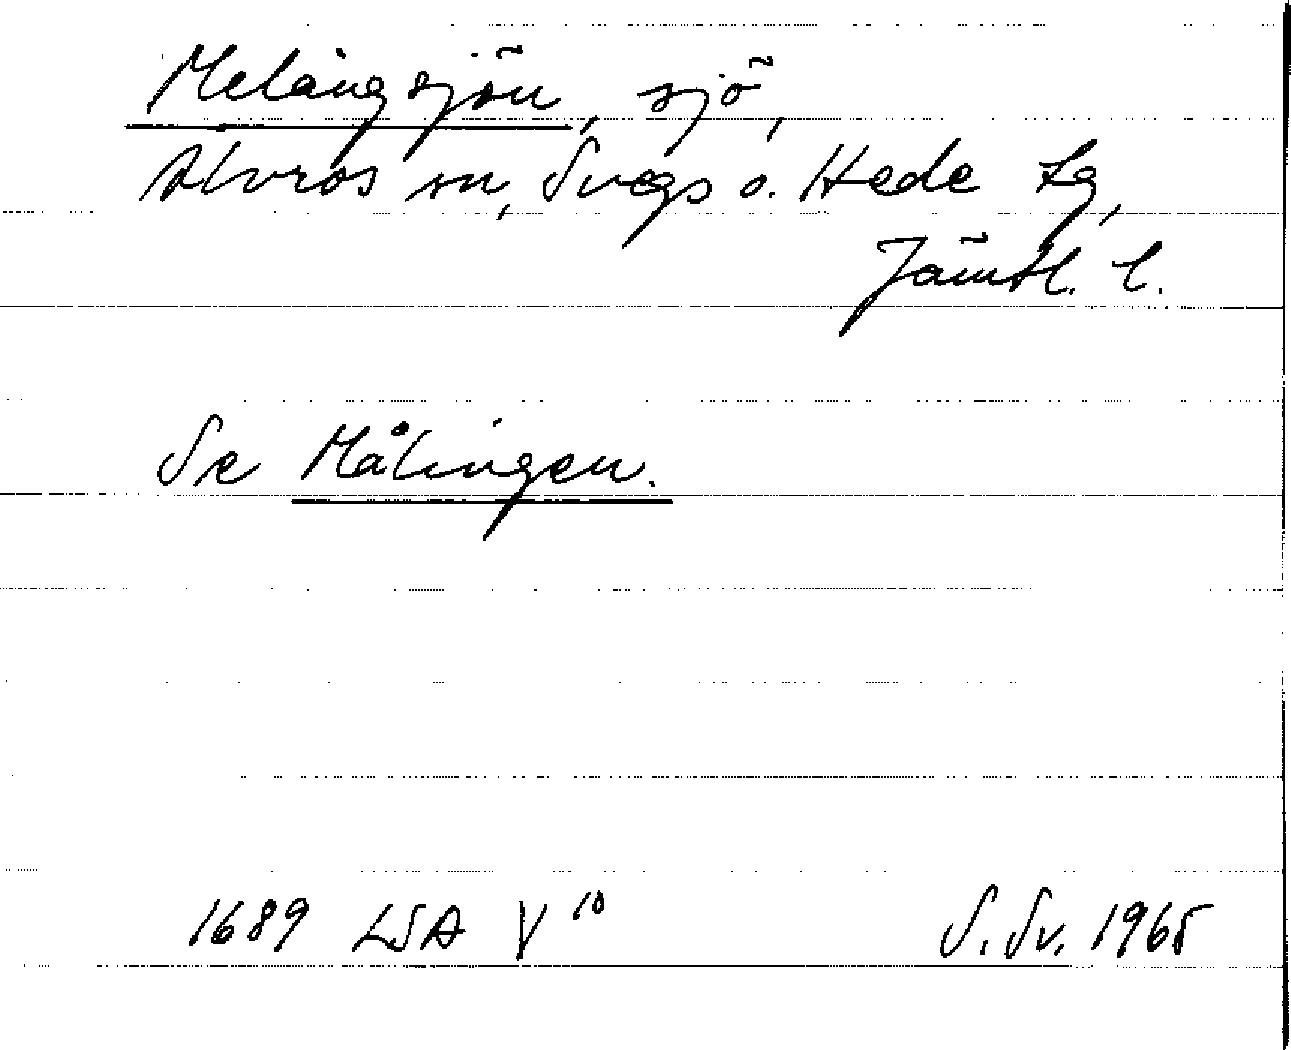 Melängsjön, sjö,
Älvros sn, Svegs o. Hede tg,
Jämtl. l.
Se Målingen.
1689 LSA V 10 S. Sv. 1965